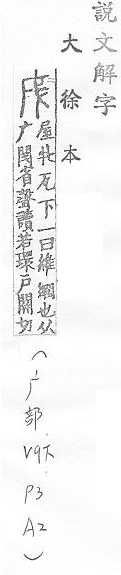 説文解字
大徐本
屋牝瓦下一曰維綱也从
广閱省聲讀若環戶關切
(广部.V9下.P3A2)